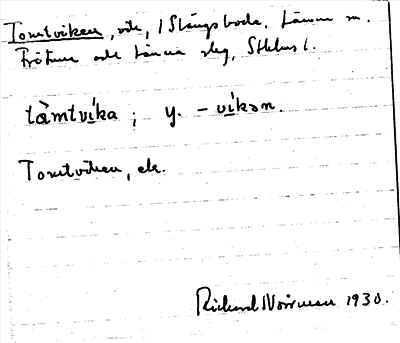 Tomtviken, vik, i Slångsboda, Länna sn.
Frötuna och Länna slg, Sthlms l.
tàmtvíka; y. – víkən.
Tomtviken, ek.
Rickard Norrman 1930.